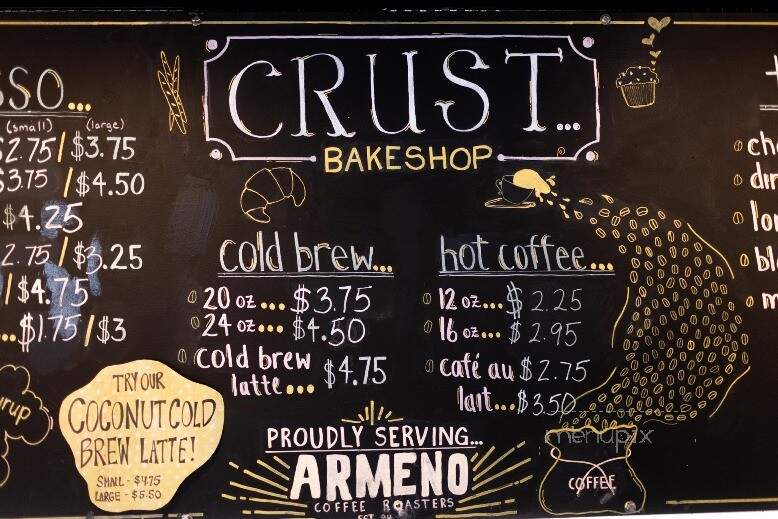 CRUST...
BAKESHOP
SSO...
(small) (large)
$2.75/$3.75
$3.75/$4.50
$4.25
2.75/$3.25
/$4.75
...$1.75/$3
TRY OUR
COCONUT COLD
BREW LATTE!
SMALL - $4.75
LARGE - $5.50
cold brew...
20 oz...$3.75
24 oz...$4.50
cold brew
latte...$4.75
hot coffee...
12 oz...$2.25
16 oz...$2.95
café au $2.75
lait...$3.50
PROUDLY SERVING...
ARMENO
COFFEE ROASTERS
COFFEE
menupix